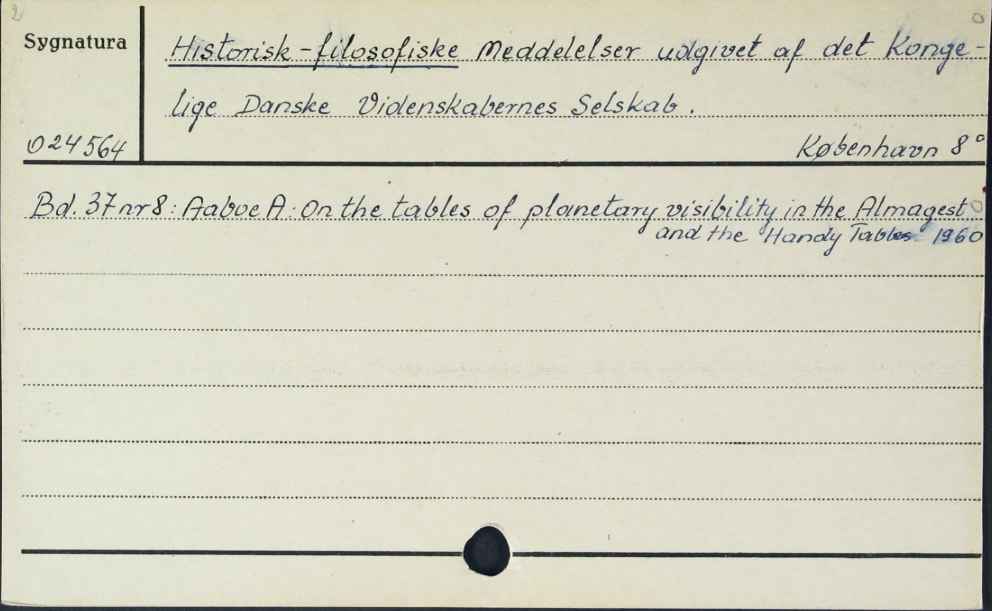 2
Sygnatura
Historisk-filosofiske Meddelelser udgivet af det Konge-
lige Danske Videnskabernes Selskab.
024564
København 8°
Bd. 37 nr 8: Aaboe A: On the tables of planetary visibility in the Almagest
and the Handy Tables 1960